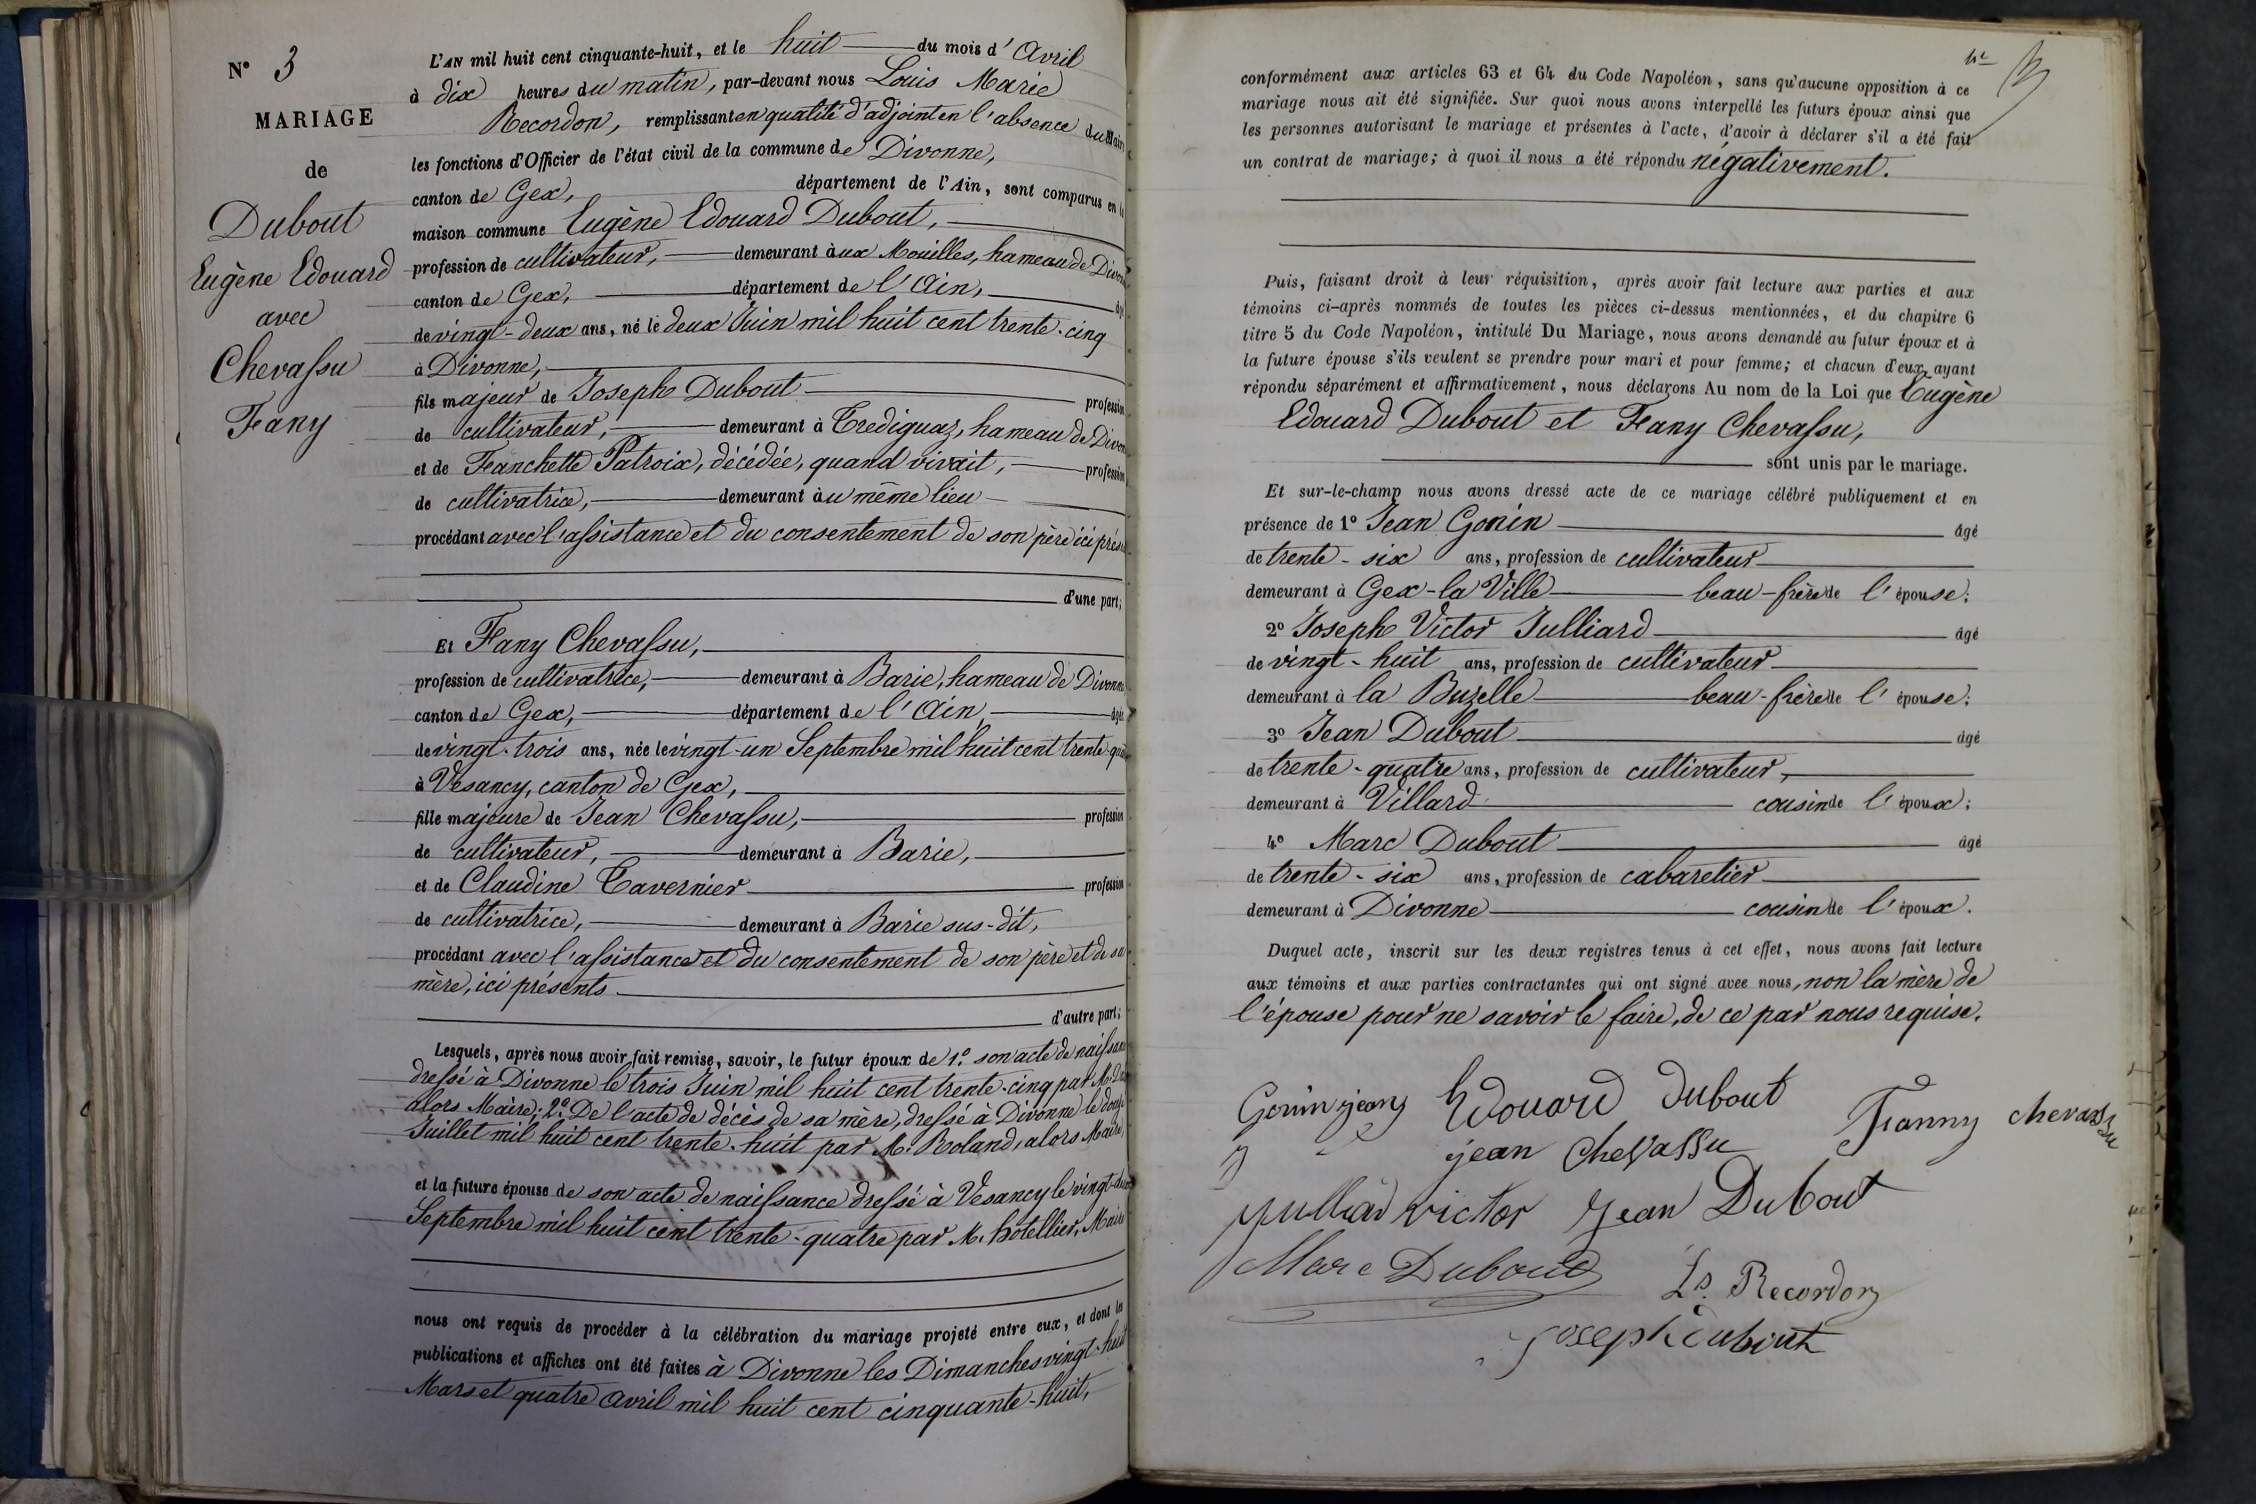 N° 3
MARIAGE
de
Dubout
Eugène Edouard
avec
Chevassu
Fany
L'AN mil huit cent cinquante-huit, et le huit du mois d'Avril
à dix heures du matin, par-devant nous Louis Marie
Recordon, remplissant en qualité d'adjoint en l'absence du Maire
les fonctions d'Officier de l'état civil de la commune de Divonne,
canton de Gex, département de l'Ain, sont comparus en la
maison commune Eugène Edouard Dubout,
profession de cultivateur, demeurant aux Mouilles, hameau de Divonne
canton de Gex, département de l'Ain, âgé
de vingt-deux ans, né le deux Juin mil huit cent trente-cinq
à Divonne,
fils majeur de Joseph Dubout profession
de cultivateur, demeurant à Trediguaz, hameau de Divonne
et de Franchette Patroix, décédée, quand vivait, profession
de cultivatrice, demeurant au même lieu
procédant avec l'assistance et du consentement de son père ici présent
d'une part;
Et Fany Chevassu,
profession de cultivatrice, demeurant à Barie, hameau de Divonne
canton de Gex, département de l'Ain, âgée
de vingt-trois ans, née le vingt-un Septembre mil huit cent trente-qua
à Vesancy, canton de Gex,
fille majeure de Jean Chevassu, profession
de cultivateur, demeurant à Barie,
et de Claudine Tavernier profession
de cultivatrice, demeurant à Barie sus-dit,
procédant avec l'assistance et du consentement de son père et de sa
mère, ici présents
d'autre part;
Lesquels, après nous avoir fait remise, savoir, le futur époux de 1° son acte de naissance
dressé à Divonne le trois Juin mil huit cent trente-cinq par M.
alors Maire; 2° De l'acte de décès de sa mère, dressé à Divonne le douze
Juillet mil huit cent trente-huit par M. Roland, alors Maire,
et la future épouse de son acte de naissance dressé à Vesancy le vingt-deux
Septembre mil huit cent trente-quatre par M. hotellier, Maire
nous ont requis de procéder à la célébration du mariage projeté entre eux, et dont les
publications et affiches ont été faites à Divonne les Dimanches vingt-huit
Mars et quatre Avril mil huit cent cinquante-huit,
conformément aux articles 63 et 64 du Code Napoléon, sans qu'aucune opposition à ce
mariage nous ait été signifiée. Sur quoi nous avons interpellé les futurs époux ainsi que
les personnes autorisant le mariage et présentes à l'acte, d'avoir à déclarer s'il a été fait
un contrat de mariage; à quoi il nous a été répondu négativement.
Puis, faisant droit à leur réquisition, après avoir fait lecture aux parties et aux
témoins ci-après nommés de toutes les pièces ci-dessus mentionnées, et du chapitre 6
titre 5 du Code Napoléon, intitulé Du Mariage, nous avons demandé au futur époux et à
la future épouse s'ils veulent se prendre pour mari et pour femme; et chacun d'eux ayant
répondu séparément et affirmativement, nous déclarons Au nom de la Loi que Eugène
Edouard Dubout et Fany Chevassu,
sont unis par le mariage.
Et sur-le-champ nous avons dressé acte de ce mariage célébré publiquement et en
présence de 1° Jean Gonin âgé
de trente-six ans, profession de cultivateur
demeurant à Gex-la Ville beau-frère de l'épouse;
2° Joseph Victor Julliard âgé
de vingt-huit ans, profession de cultivateur
demeurant à la Buzelle beau-frère de l'épouse;
3° Jean Dubout âgé
de trente-quatre ans, profession de cultivateur,
demeurant à Villard cousin de l'époux;
4° Marc Dubout âgé
de trente-six ans, profession de cabaretier
demeurant à Divonne cousin de l'époux.
Duquel acte, inscrit sur les deux registres tenus à cet effet, nous avons fait lecture
aux témoins et aux parties contractantes qui ont signé avec nous, non la mère de
l'épouse pour ne savoir le faire, de ce par nous requise.
Gonin jean Edouard Dubout
jean Chevassu Fanny chevassu
julliard victor Jean Dubout
Marc Dubout
Ls. Recordon
joseph dubout